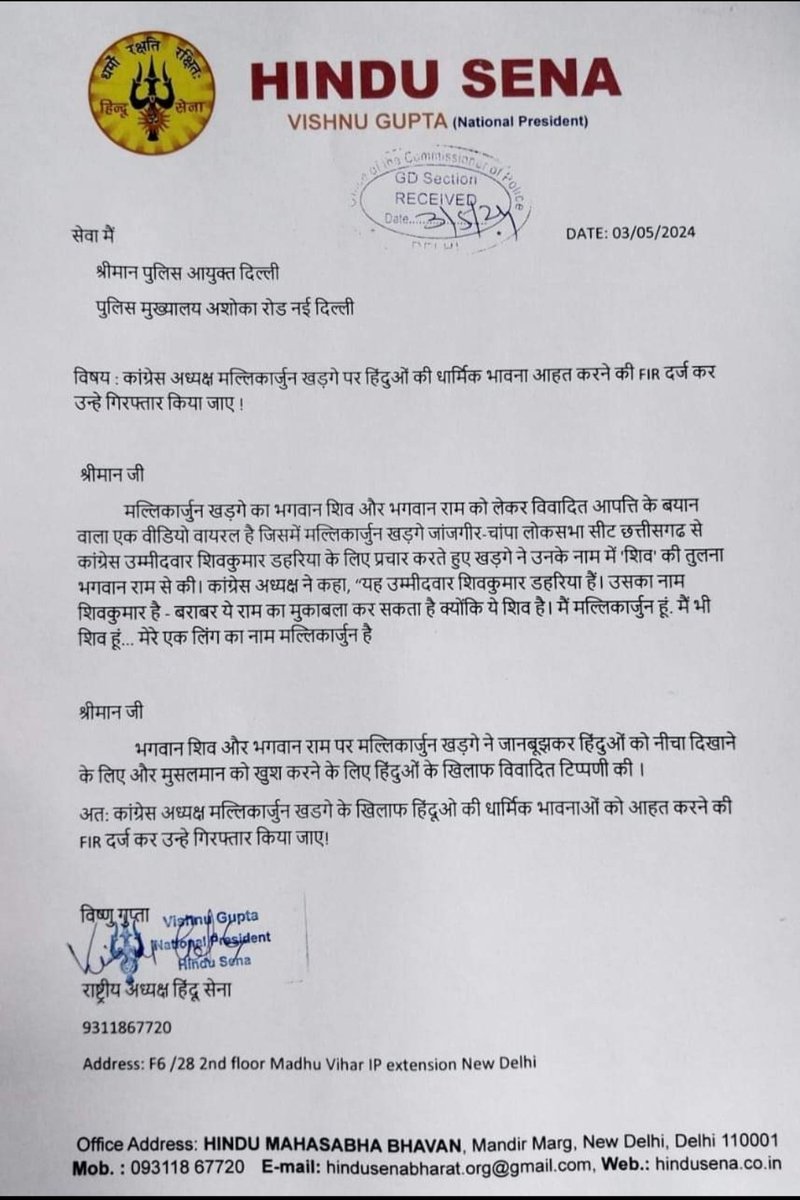 धर्मो रक्षति रक्षितः
हिन्दू सेना
HINDU SENA
VISHNU GUPTA (National President)
Office of the Commissioner of Police
GD Section
RECEIVED
Date....3/5/24
DELHI
सेवा मैं
DATE: 03/05/2024
श्रीमान पुलिस आयुक्त दिल्ली
पुलिस मुख्यालय अशोका रोड नई दिल्ली
विषय : कांग्रेस अध्यक्ष मल्लिकार्जुन खड़गे पर हिंदुओं की धार्मिक भावना आहत करने की FIR दर्ज कर
उन्हे गिरफ्तार किया जाए !
श्रीमान जी
मल्लिकार्जुन खड़गे का भगवान शिव और भगवान राम को लेकर विवादित आपत्ति के बयान
वाला एक वीडियो वायरल है जिसमें मल्लिकार्जुन खड़गे जांजगीर-चांपा लोकसभा सीट छत्तीसगढ से
कांग्रेस उम्मीदवार शिवकुमार डहरिया के लिए प्रचार करते हुए खड़गे ने उनके नाम में 'शिव' की तुलना
भगवान राम से की। कांग्रेस अध्यक्ष ने कहा, “यह उम्मीदवार शिवकुमार डहरिया हैं। उसका नाम
शिवकुमार है - बराबर ये राम का मुकाबला कर सकता है क्योंकि ये शिव है। मैं मल्लिकार्जुन हूं. मैं भी
शिव हूं... मेरे एक लिंग का नाम मल्लिकार्जुन है
श्रीमान जी
भगवान शिव और भगवान राम पर मल्लिकार्जुन खड़गे ने जानबूझकर हिंदुओं को नीचा दिखाने
के लिए और मुसलमान को खुश करने के लिए हिंदुओं के खिलाफ विवादित टिप्पणी की ।
अत: कांग्रेस अध्यक्ष मल्लिकार्जुन खडगे के खिलाफ हिंदूओ की धार्मिक भावनाओं को आहत करने की
FIR दर्ज कर उन्हे गिरफ्तार किया जाए!
विष्णु गुप्ता
Vishnu Gupta
National President
Hindu Sena
राष्ट्रीय अध्यक्ष हिंदू सेना
9311867720
Address: F6 /28 2nd floor Madhu Vihar IP extension New Delhi
Office Address: HINDU MAHASABHA BHAVAN, Mandir Marg, New Delhi, Delhi 110001
Mob. : 093118 67720 E-mail: hindusenabharat.org@gmail.com, Web.: hindusena.co.in